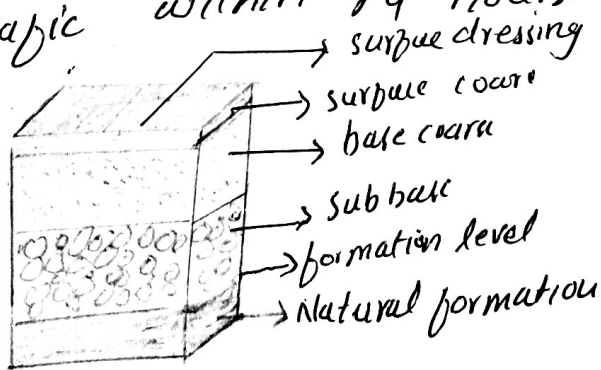 afic within 24 hours
surfue dressing
surfuce coars
base coarse
subbase
formation level
Natural formation